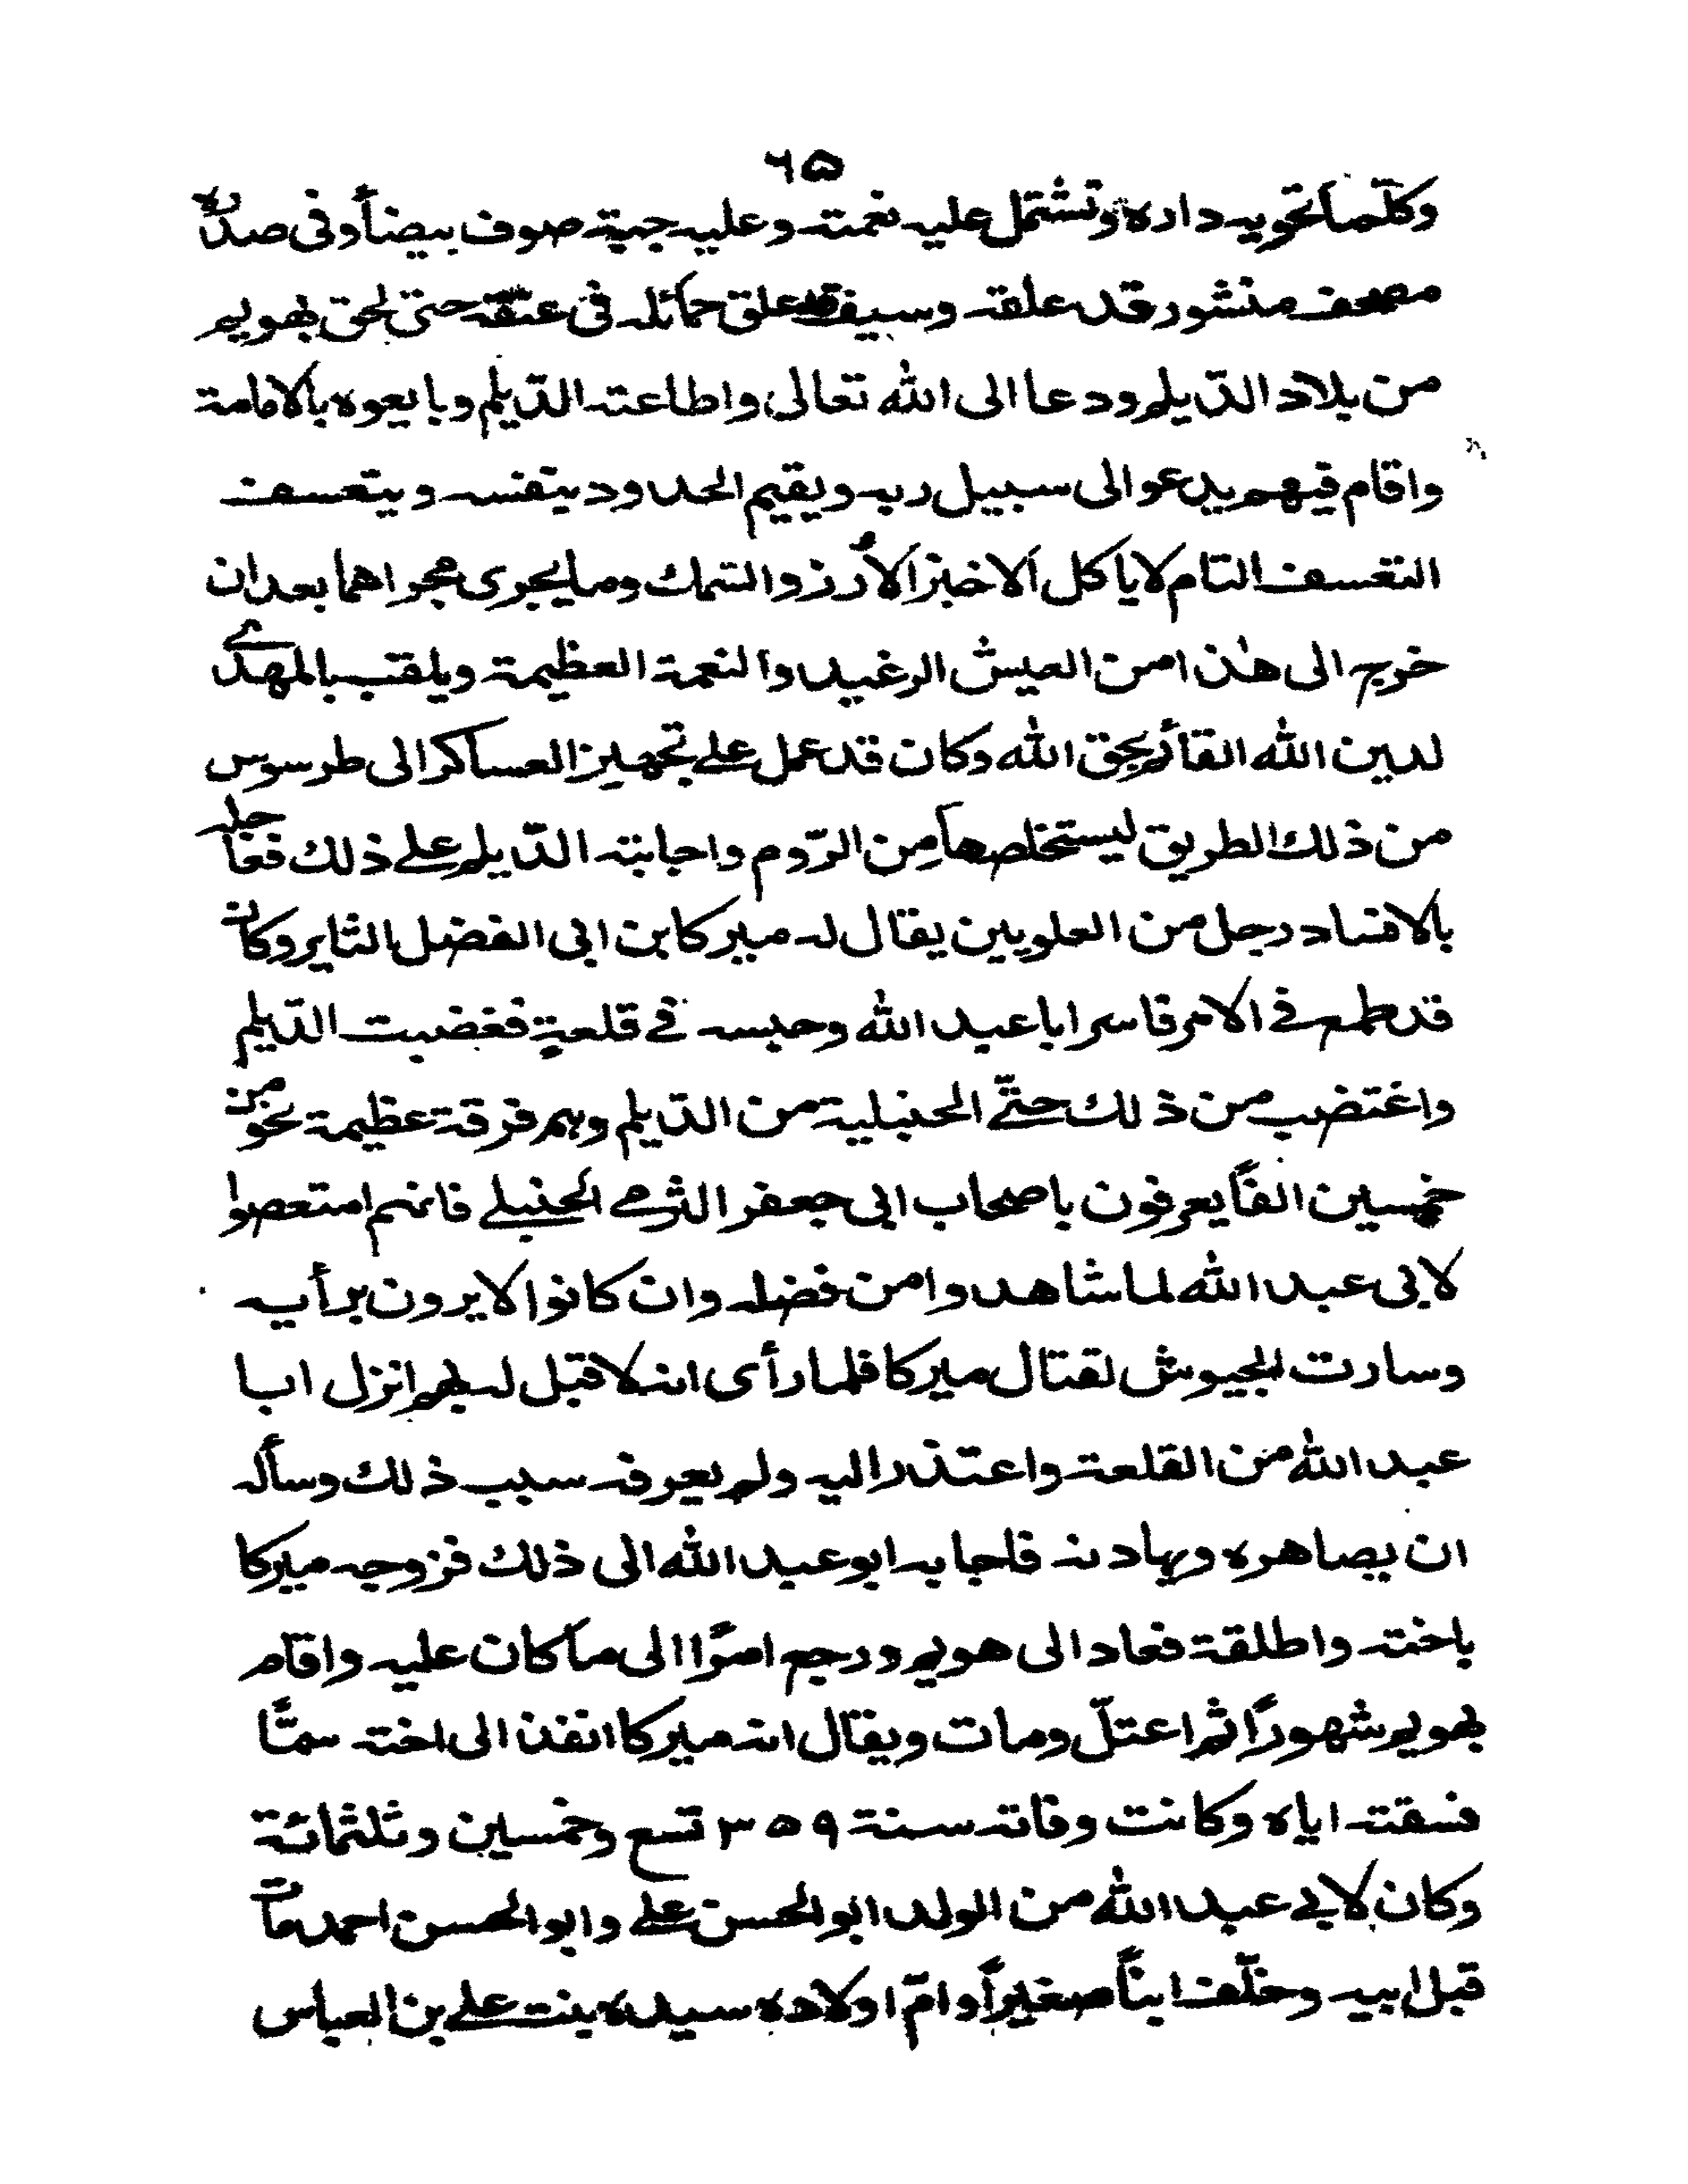 ۶۵
وكلّما تحويه داره وتشتمل عليه نعمته وعليه جبة صوف بيضأ وفى صدره
مصحف منشور قد علقه وسيف علق حمائله فى عنقه حتى لحق بهويم
من بلاد الدّيلم ودعا الى الله تعالى واطاعته الدّيلم وبايعوه بالامامة
واقام فيهم يدعوا الى سبيل ربه ويقيم الحدود بنفسه ويتعسف
التعسف التام لا ياكل الا خبز الأرز والسّمك وما يجرى مجراهما بعد ان
خرج الى هذا من العيش الرغيد والنعمة العظيمة ويلقب بالمهدى
لدين الله القائم بحق الله وكان قد عمل على تجهيز العساكر الى طرسوس
من ذلك الطريق ليستخلصها من الرّوم واجابته الدّيلم على ذلك فعاجله
بالافساد رجل من العلويين يقال له ميركا بن ابى الفضل الثاير وكان
قد طمع فى الامر فاسر ابا عبد الله وحبسه فى قلعة فغضبت الدّيلم
واغتضب من ذلك حتّى الحنبلية من الدّيلم وهم فرقة عظيمة نحو من
خمسين الفاً يعرفون باصحاب ابى جعفر الثرمى الحنبلى فانهم امتعصوا
لابى عبد الله لما شاهدوا من فضله وان كانوا لا يرون برأيه
وسارت الجيوش لقتال ميركا فلما رأى انه لا قبل له بهم انزل ابا
عبد الله من القلعة واعتذر اليه ولم يعرفه سبب ذلك وسأله
ان يصاهره ويهادنه فاجابه ابو عبد الله الى ذلك فزوجه ميركا
باخته واطلقة فعاد الى هويم ورجع امرًا الى ما كان عليه واقام
بهويم شهورًا ثم اعتلّ ومات ويقال انه ميركا انفذ الى اخته سمًّا
فسقته اياه وكانت وفاته سنة ٣٥٩ تسع وخمسين وثلثمائة
وكان لابى عبد الله من الولد ابو الحسن على وابو الحسن احمد مات
قبل ابيه وخلّف ابناً صغيراً وامّ اولاده سيده بنت على بن العباس